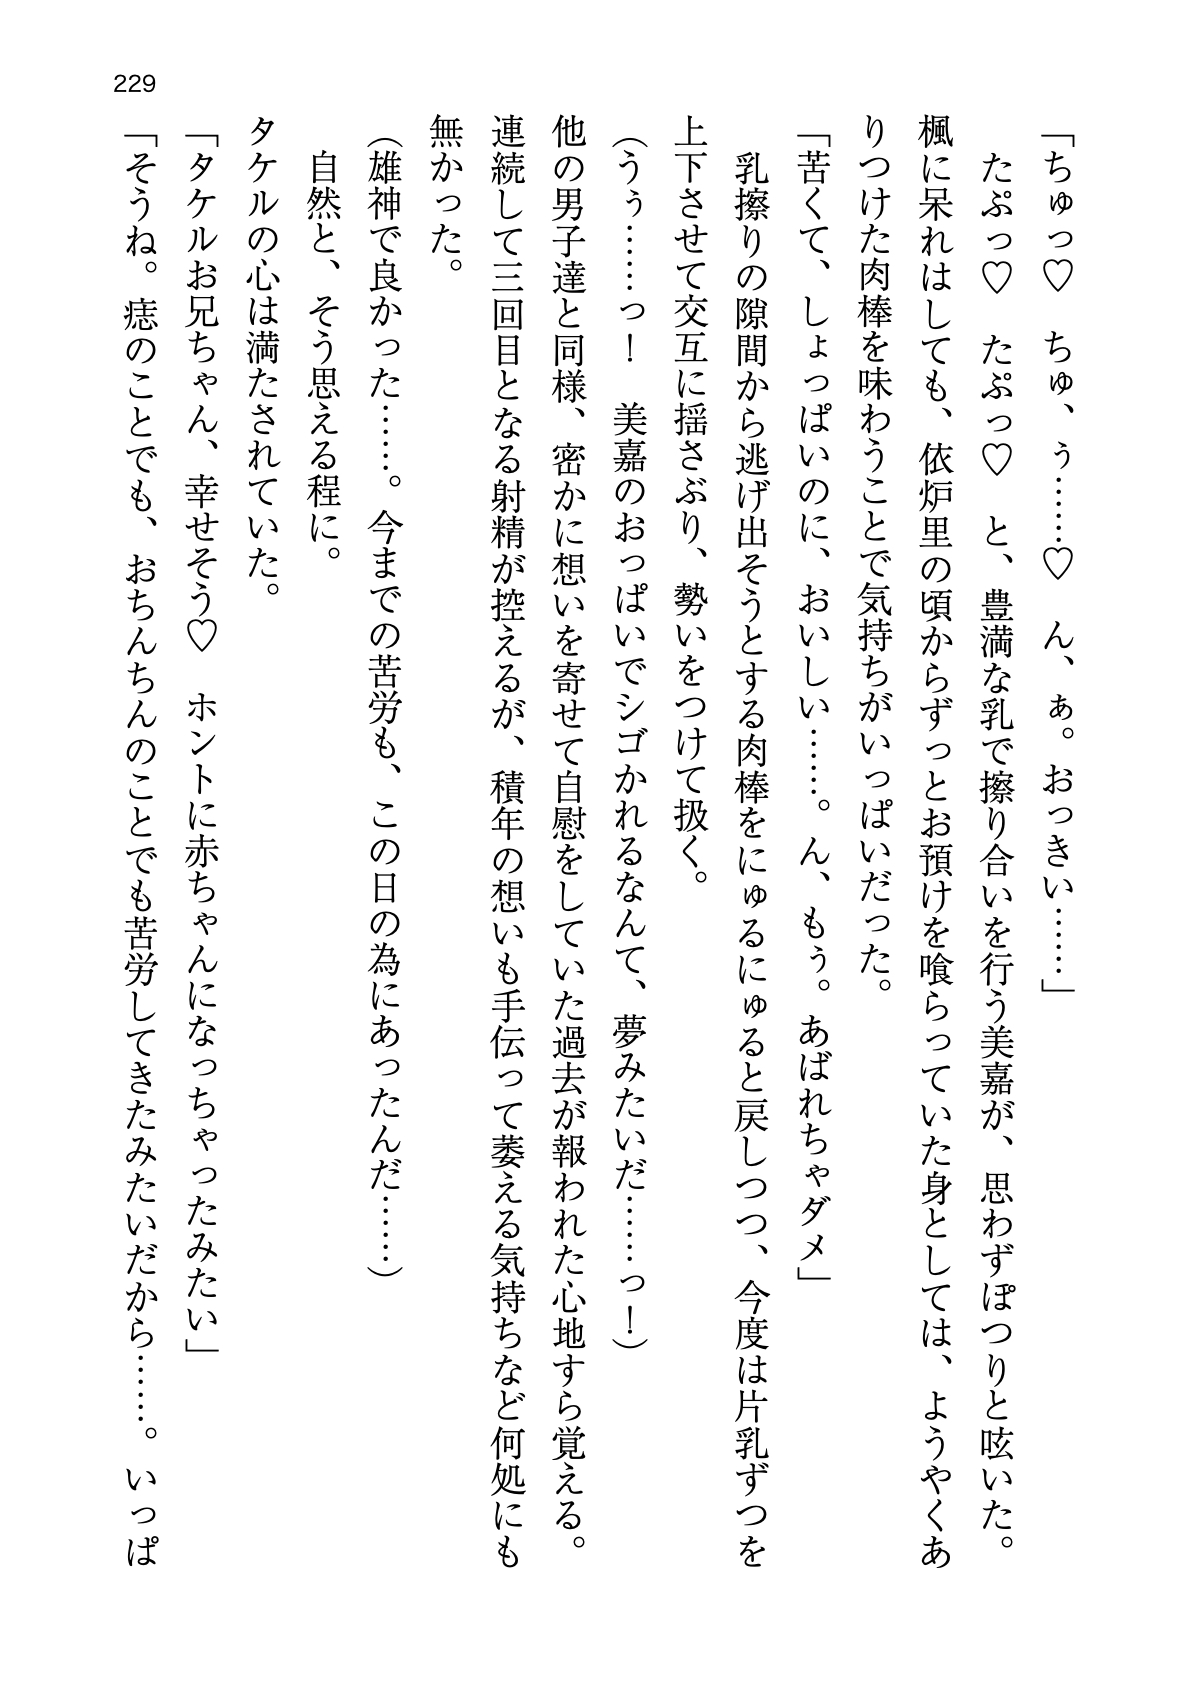 229
「ちゅっ♡　ちゅ、ぅ……♡　ん、ぁ。おっきぃ……」
　たぷっ♡　たぷっ♡　と、豊満な乳で擦り合いを行う美嘉が、思わずぽつりと呟いた。
楓に呆れはしても、依炉里の頃からずっとお預けを喰らっていた身としては、ようやくあ
りつけた肉棒を味わうことで気持ちがいっぱいだった。
「苦くて、しょっぱいのに、おいしい……。ん、もぅ。あばれちゃダメ」
　乳擦りの隙間から逃げ出そうとする肉棒をにゅるにゅると戻しつつ、今度は片乳ずつを
上下させて交互に揺さぶり、勢いをつけて扱く。
（うぅ……っ！　美嘉のおっぱいでシゴかれるなんて、夢みたいだ……っ！）
他の男子達と同様、密かに想いを寄せて自慰をしていた過去が報われた心地すら覚える。
連続して三回目となる射精が控えるが、積年の想いも手伝って萎える気持ちなど何処にも
無かった。
（雄神で良かった……。今までの苦労も、この日の為にあったんだ……）
　自然と、そう思える程に。
タケルの心は満たされていた。
「タケルお兄ちゃん、幸せそう♡　ホントに赤ちゃんになっちゃったみたい」
「そうね。痣のことでも、おちんちんのことでも苦労してきたみたいだから……。いっぱ